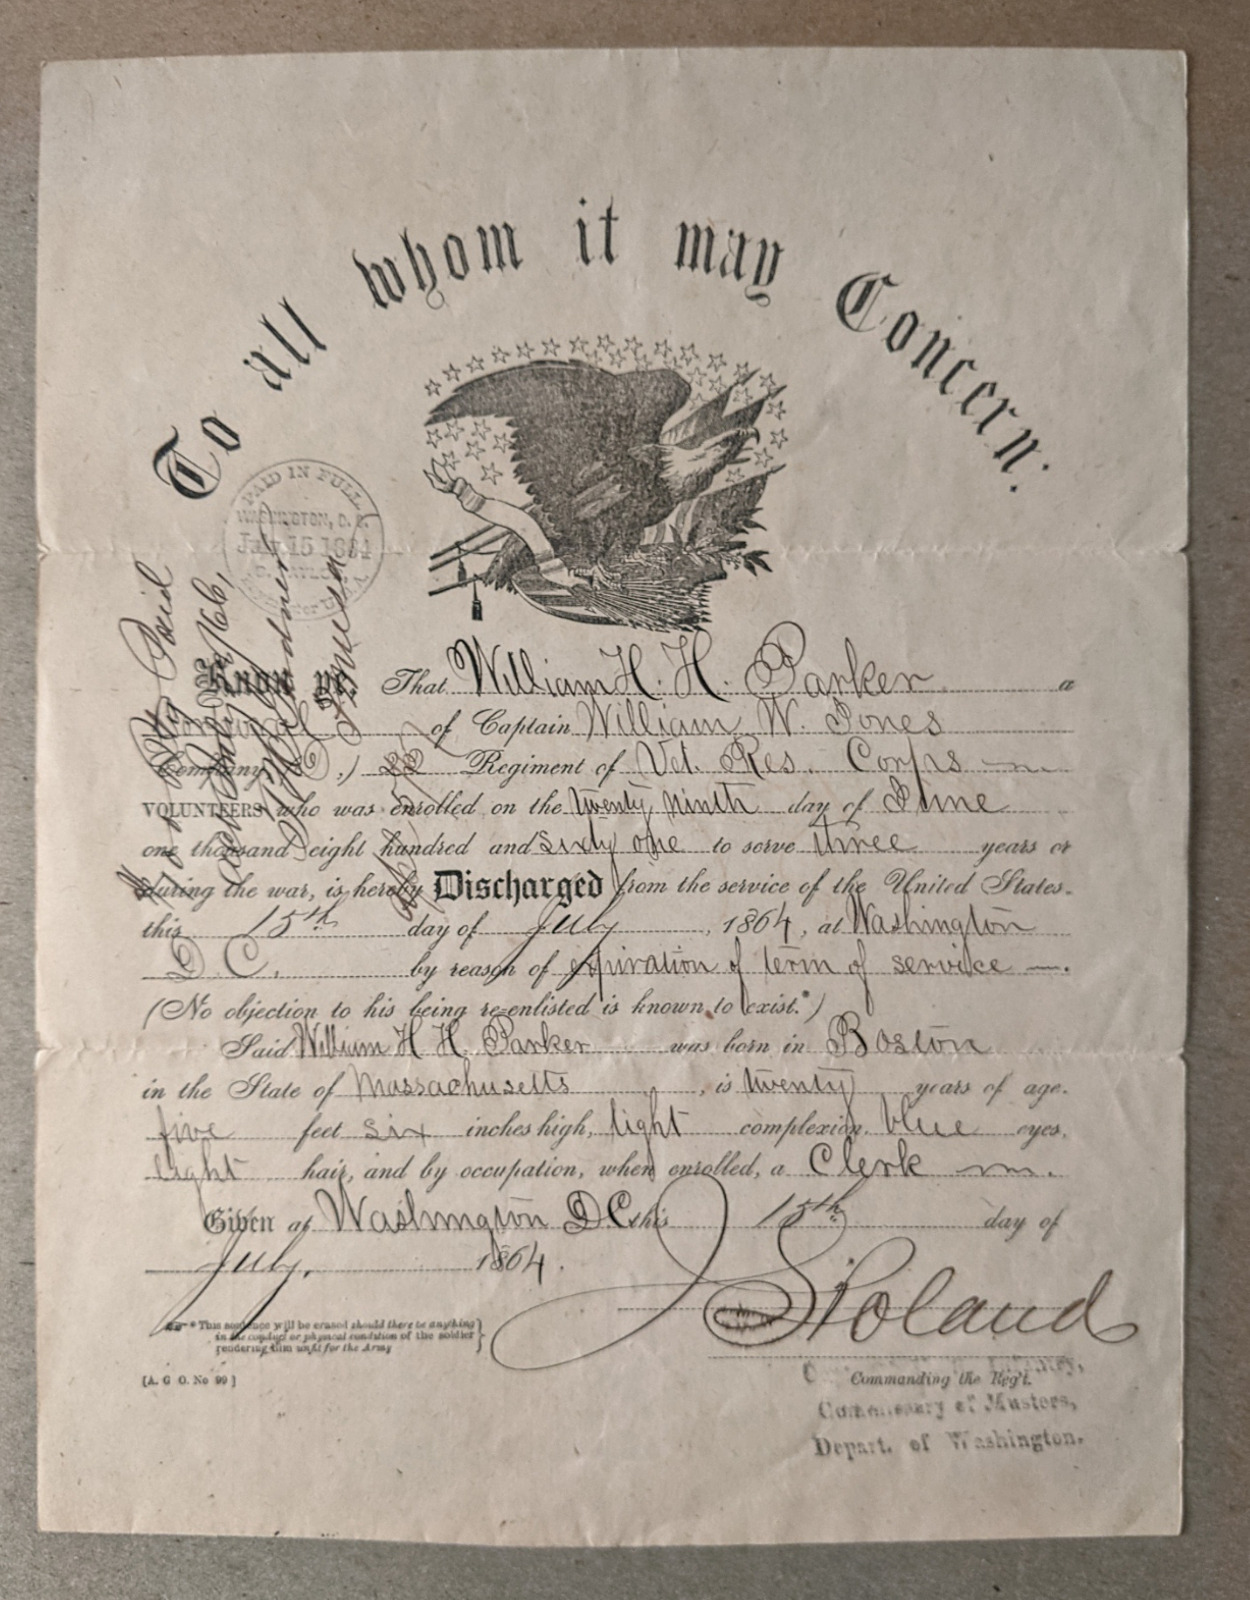 To all whom it may Concern:
PAID IN FULL
WASHINGTON, D. C.
15 1864
Know ye, That William H. H. Parker a
of Captain William W. Jones
Company (D.) 22 Regiment of Vet. Res. Corps
VOLUNTEERS who was enrolled on the twenty ninth day of June
one thousand eight hundred and sixty one to serve three years or
during the war, is hereby Discharged from the service of the United States.
this 15th day of July, 1864, at Washington
D C. by reason of expiration of term of service —.
(No objection to his being re-enlisted is known to exist.*)
Said William H H. Parker was born in Boston
in the State of Massachusetts, is twenty years of age.
five feet six inches high, light complexion, blue eyes,
light hair, and by occupation, when enrolled, a Clerk
Given at Washington D C this 15th day of
July, 1864.
*This sentence will be erased should there be anything
in the conduct or physical condition of the soldier
rendering him unfit for the Army
[A. G O. No 99]
Roland
Commanding the Reg't.
Commissary of Musters,
Depart. of Washington.
Paid